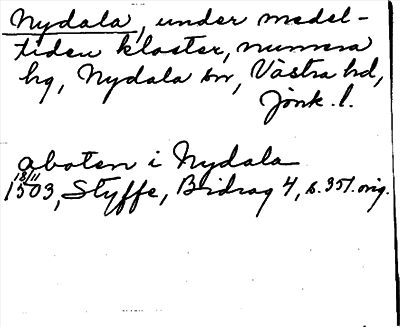 Nydala, under medel-
tiden kloster, numera
hg, Nydala sn, Västra hd,
Jönk. l.
aboten i Nydala
18/11
1503, Styffe, Bidrag 4, s. 351. orig.